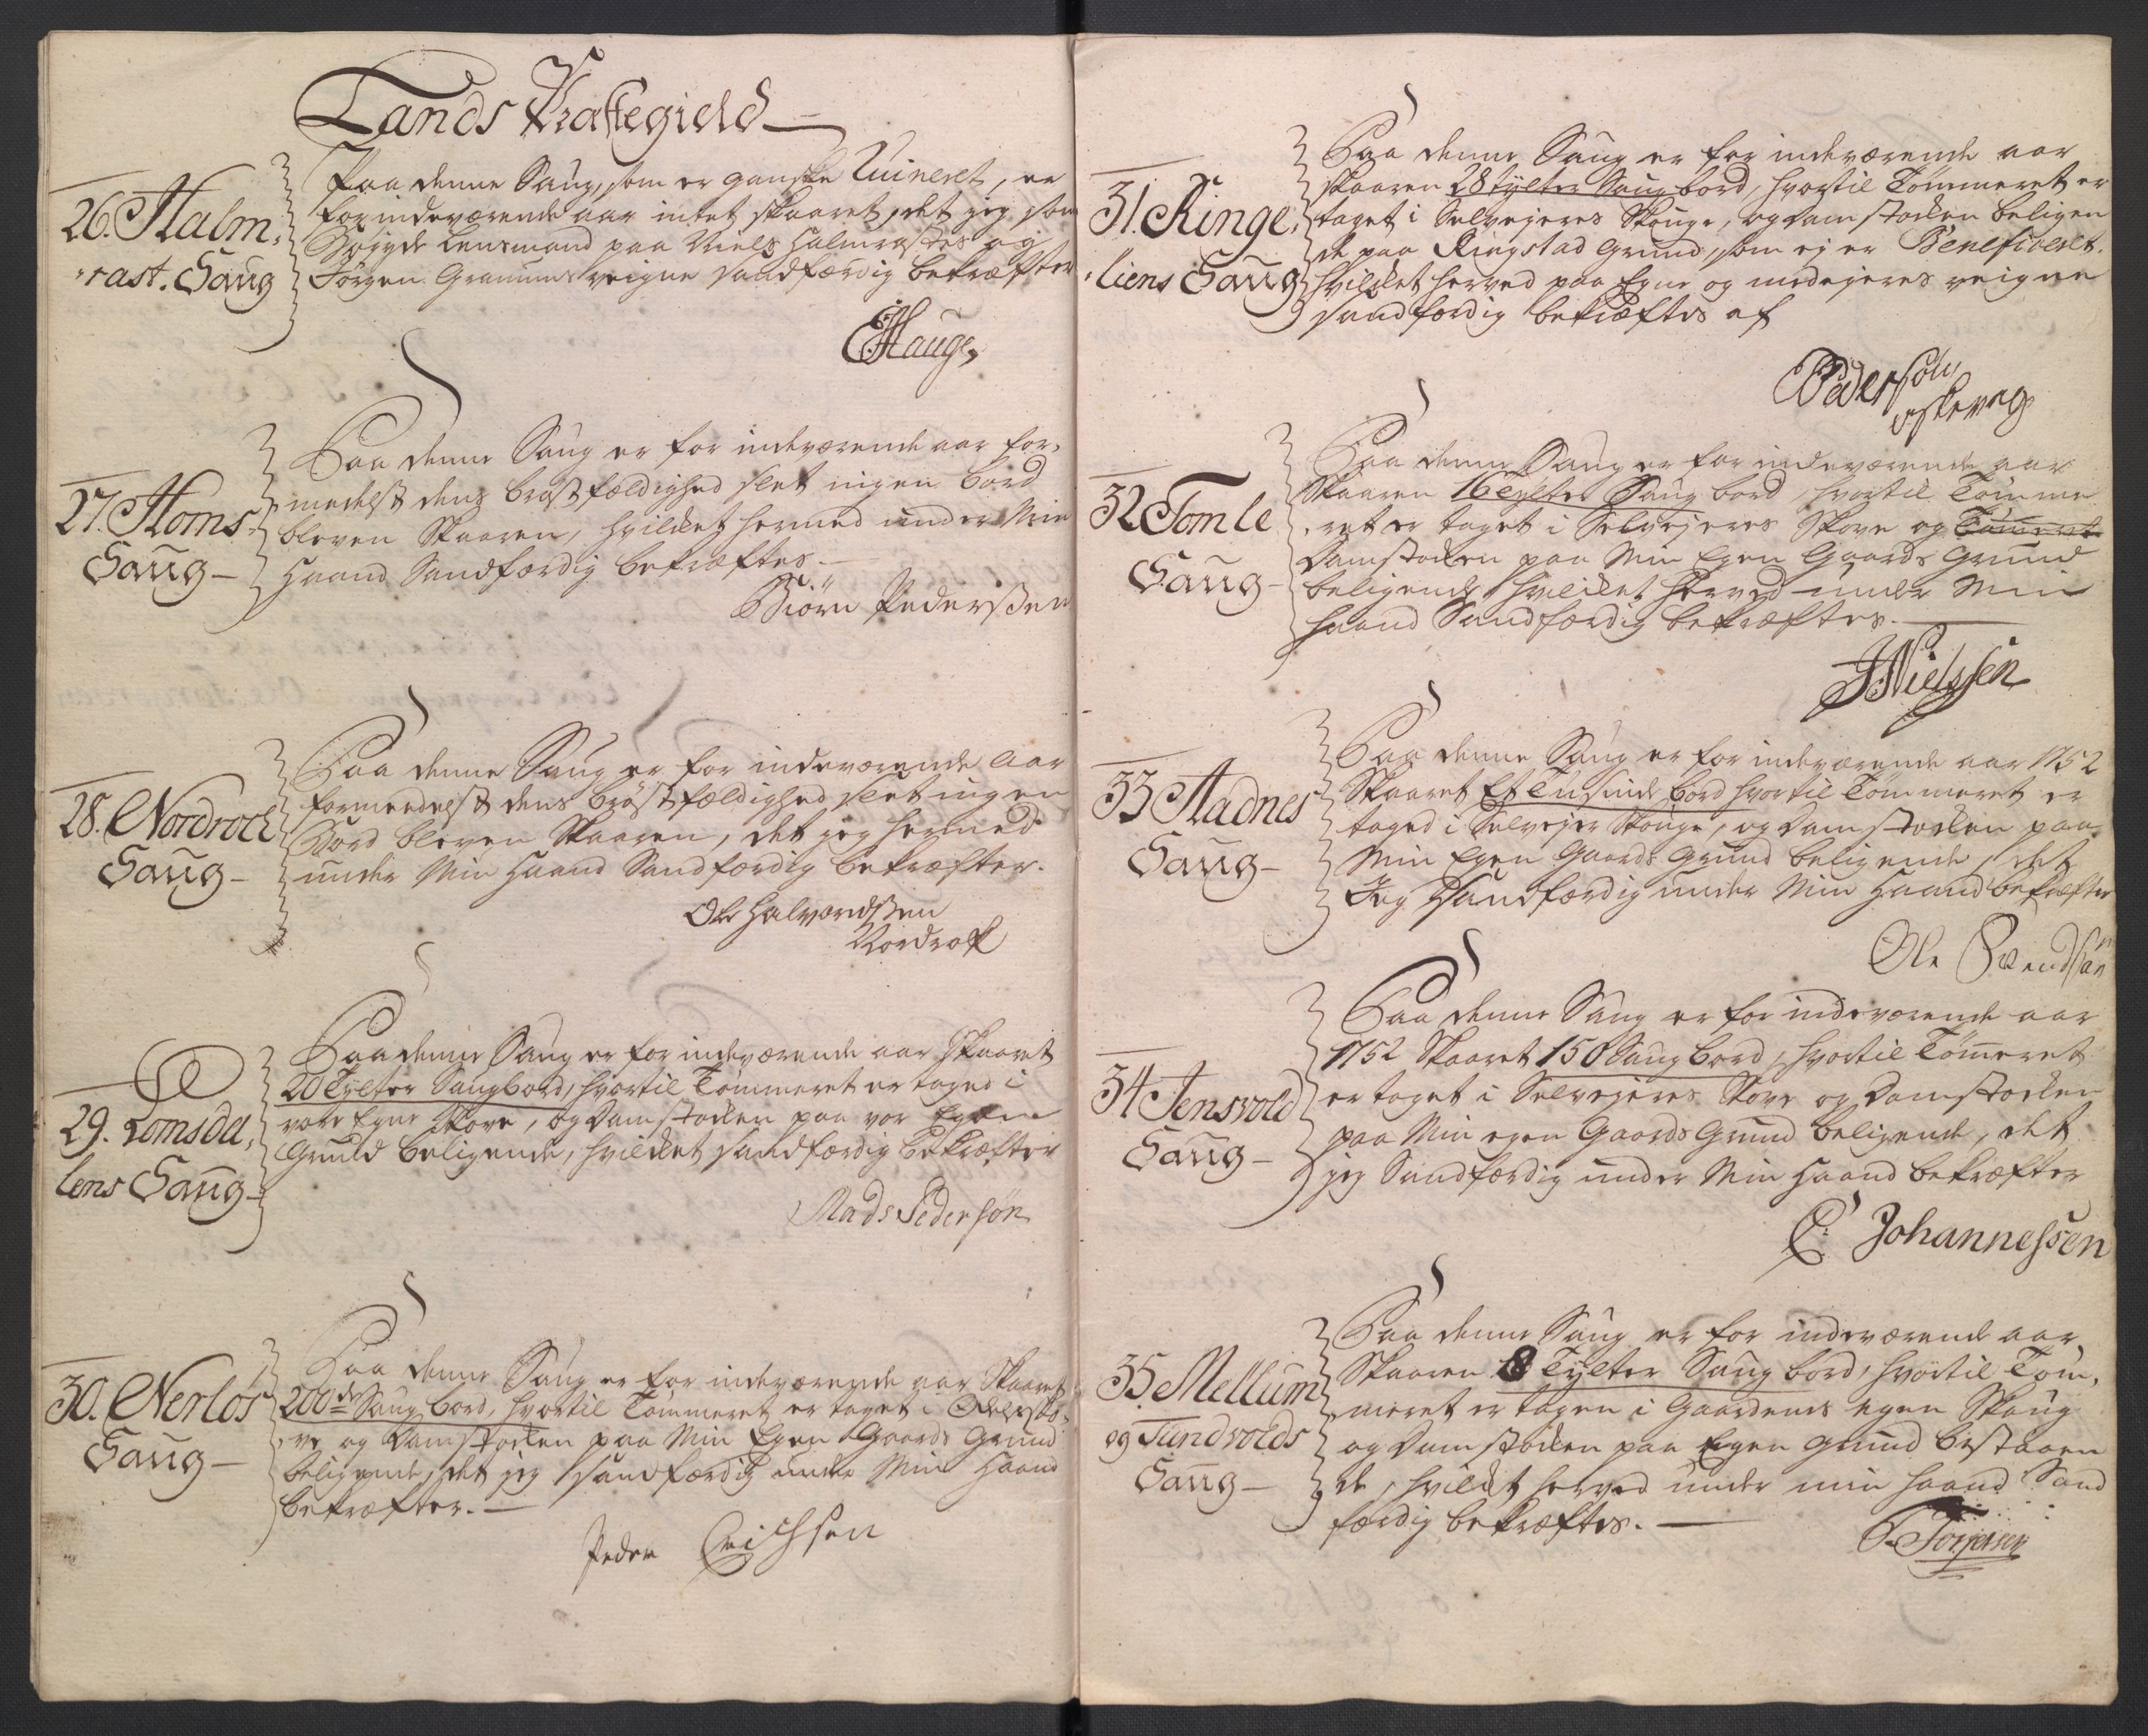 Lands Præstegield
26. Halm,
rast. Saug
Paa denne Saug, som er ganske Ruineret, er
for indeværende aar intet skaaret, det jeg som
Bøygde Lensmand paa Niels Halmrastes og
Jørgen Granums veigne sandfærdig bekræfter
EHauge
27. Homs
Saug
Paa denne Saug er for indeværende aar for,
medelst dens brøstfældighed slet ingen bord
bleven Skaaren, hvilcket hermed under Min
Haand Sandfærdig bekræftes.
Biörn Pederssen
28. Nordroch
Saug
Paa denne Saug er for indeværende Aar
formeedelst dens brøstfældighed slet ingen
Bord bleven Skaaren, det jeg hermed
under Min Haand Sandfærdig bekræfter.
Ole Halvordssen
Nordrok
29. Lomsda,
lens Saug
Paa denne Saug er for indeværende aar Skaaret
20 Tylter Saugbord, hvortil Tømmeret er taged i
vore Egne Skove, og Damstocken paa vor Egen
Grund beligende, hvilcket sandfærdig bekræfter
Mads Pedersøn
30. Nerløs
Saug
Paa denne Saug er for indeværende aar Skaaret
200de Saug bord, hvortil Tømmeret er taget i
ve og Damstocken paa Min Egen Gaards Grund
beligende, det jeg sandfærdig under Min Haand
bekræfter.
Peder Erichsen
31. Ringe,
liens Saug
Paa denne Saug er for indeværende aar
skaaren 28 tylter Saug bord, hvortil Tømmeret er
taget i Selvejeres Skouge, og Damstocken beligen
de paa Ringstad Grund, som ej er Beneficeret.
hvilcket herved paa Egne og medejeres veigne
sandfærdig bekræftes af
Pedersøn
32 Tomle
Saug
Paa denne Saug er for indeværende aar
Skaaren 16 Tylter Saug bord, hvortil Tømme
ret er taget i Selvejeres Skove og Tømmeret
Damstocken paa Min Egen Gaards Grund
beligende, hvilcket herved under Min
Haand Sandfærdig bekræftes.
JNielssen
33 Hadnes
Saug
Paa denne Saug er for indeværende aar 1752
Skaaret Et Tusinde bord hvortil Tømmeret er
taged i Selvejer Skouge, og Damstocken paa
Min Egen Gaards Grund beligende, det
Jeg Sandfærdig under Min Haand bekræfter
Ole Svendsøn
34 Jensvold
Saug
Paa denne Saug er for indeværende aar
1752 Skaaret 150 Saug bord, hvortil Tømeret
er taget i Selvejeres Skove og Damstocken
paa Min egen Gaards Grund beligende, det
jeg Sandfærdig under Min Haand bekræfter
C: Johannessen
35. Mellum
og Sundvolds
Saug
Paa denne Saug er for indeværende aar
Skaaren 8 Tylter Saug bord, hvortil Tøm,
meret er tagen i Gaardens egen Skoug
og Damstocken paa Egen Grund bestaaen
de, hvilcket herved under min haand Sand
færdig bekræftes.
Torgersen